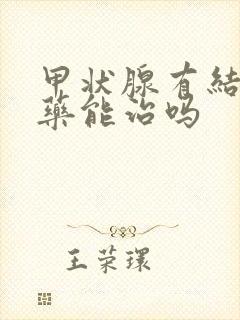 甲状腺有結
藥能治吗
王荣環